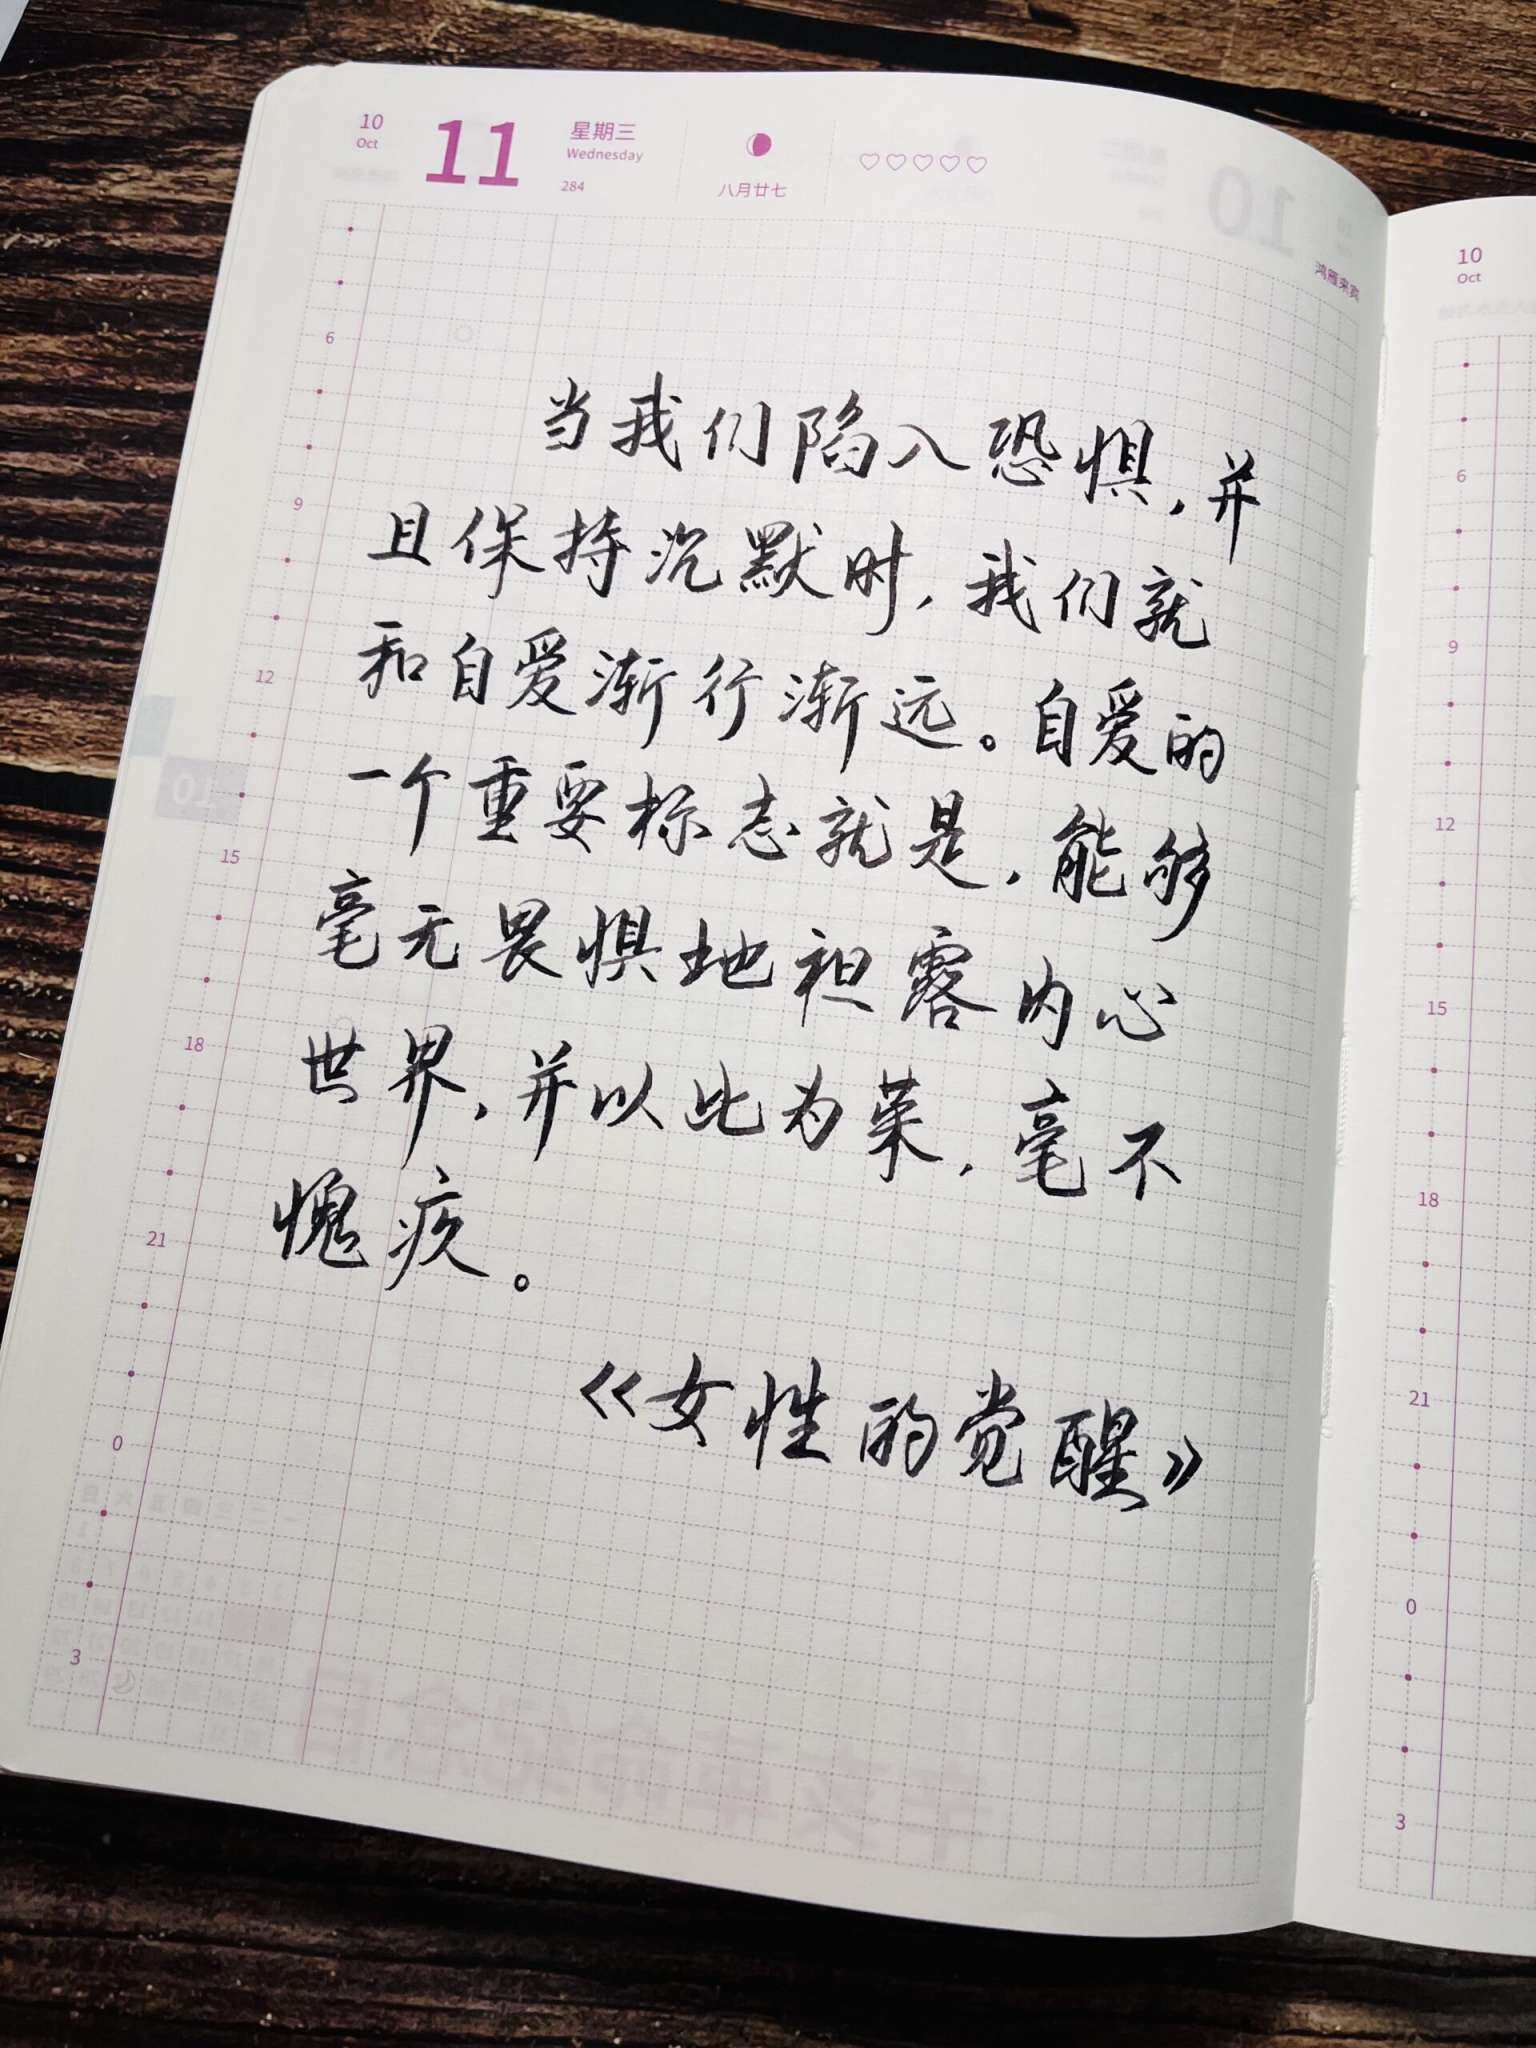 10
Oct
11
星期三
Wednesday
284
八月廿七
鸿雁来宾
6
9
12
15
18
21
0
3
10
当我们陷入恐惧,并
且保持沉默时,我们就
和自爱渐行渐远。自爱的
一个重要标志就是,能够
毫无畏惧地袒露内心
世界,并以此为荣,毫不
愧疚。
《女性的觉醒》
10
Oct
6
9
12
15
18
21
0
3